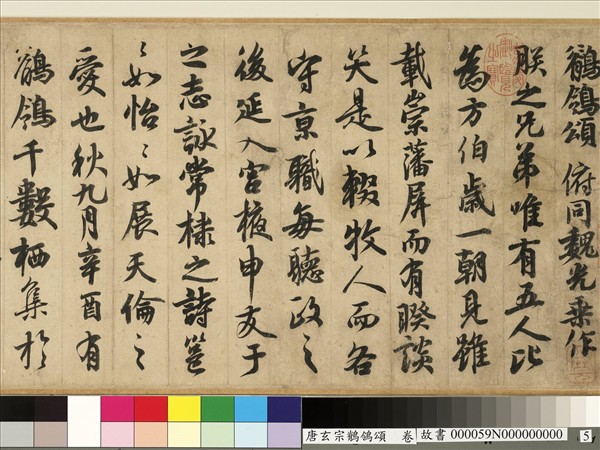 鶺鴒頌 俯同魏光乘作
朕之兄弟唯有五人比
為方伯歲一朝見雖
載崇藩屏而有睽談
笑是以輟牧人而各
守京職每聽政之
後延入宮掖申友于
之志詠常棣之詩邕
〻如怡〻如展天倫之
愛也秋九月辛酉有
鶺鴒千數栖集於
唐玄宗鶺鴒頌 卷 故書 000059N000000000 5